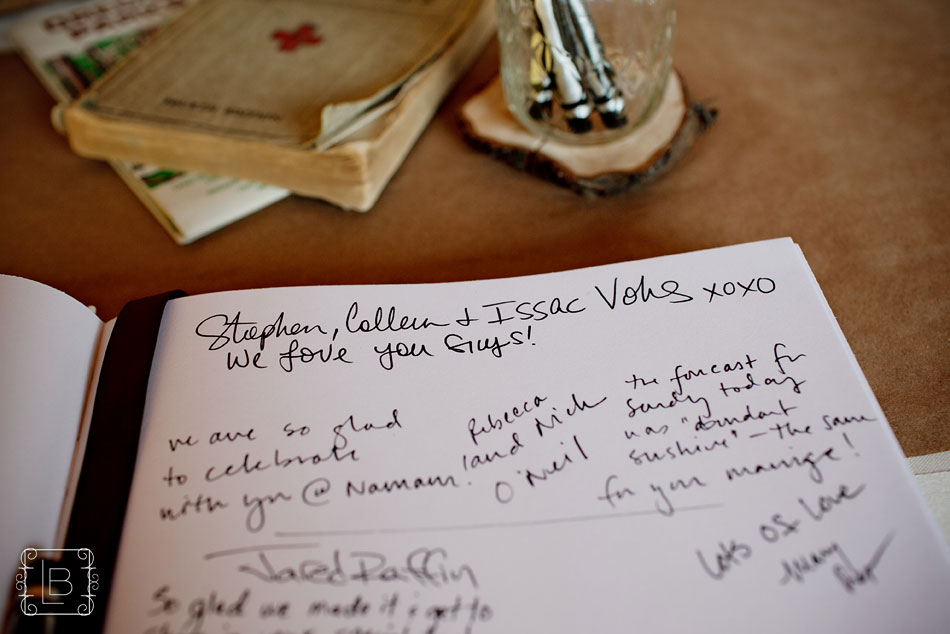 Stephen, Colleen + Issac Vohs xoxo
We love you Guys!
we are so glad
to celebrate
with you @
Rebecca
and Nick
O'Neil
the forecast for
sunday today
was "abundant
sunshine" - the same
for your marriage!
Lots of Love
Jared Raffin
So glad we made it & got to
LB